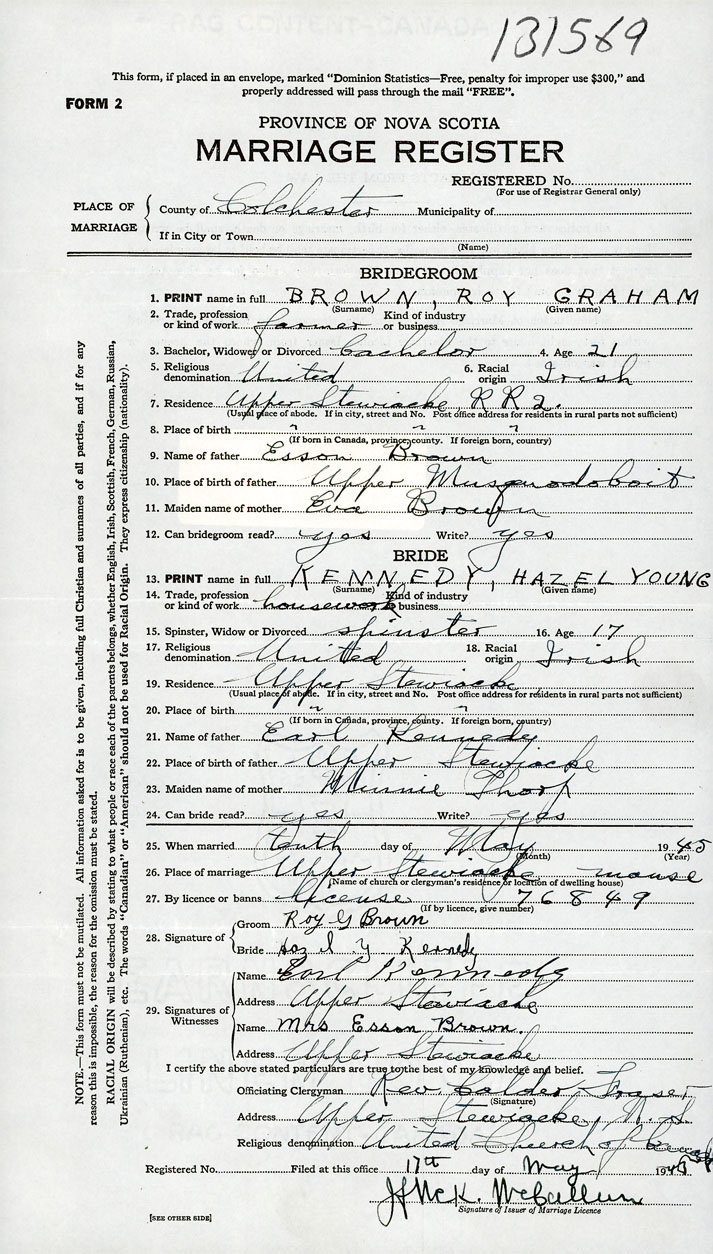 131569
This form, if placed in an envelope, marked “Dominion Statistics—Free, penalty for improper use $300,” and
properly addressed will pass through the mail “FREE”.
FORM 2
PROVINCE OF NOVA SCOTIA
MARRIAGE REGISTER
REGISTERED No.
(For use of Registrar General only)
PLACE OF MARRIAGE
County of Colchester Municipality of
If in City or Town
(Name)
BRIDEGROOM
1. PRINT name in full BROWN, ROY GRAHAM
(Surname) (Given name)
2. Trade, profession or kind of work farmer Kind of industry or business
3. Bachelor, Widower or Divorced bachelor 4. Age 21
5. Religious denomination United 6. Racial origin Irish
7. Residence Upper Stewiacke RR2.
(Usual place of abode. If in city, street and No. Post office address for residents in rural parts not sufficient)
8. Place of birth " " "
(If born in Canada, province, county. If foreign born, country)
9. Name of father Esson Brown
10. Place of birth of father Upper Musquodoboit
11. Maiden name of mother Eva Brown
12. Can bridegroom read? yes Write? yes
BRIDE
13. PRINT name in full KENNEDY, HAZEL YOUNG
(Surname) (Given name)
14. Trade, profession or kind of work housework Kind of industry or business
15. Spinster, Widow or Divorced spinster 16. Age 17
17. Religious denomination United 18. Racial origin Irish
19. Residence Upper Stewiacke
(Usual place of abode. If in city, street and No. Post office address for residents in rural parts not sufficient)
20. Place of birth " "
(If born in Canada, province, county. If foreign born, country)
21. Name of father Earl Kennedy
22. Place of birth of father Upper Stewiacke
23. Maiden name of mother Minnie Thorp
24. Can bride read? yes Write? yes
25. When married tenth day of May 1945
(Month) (Year)
26. Place of marriage Upper Stewiacke manse
(Name of church or clergyman's residence or location of dwelling house)
27. By licence or banns license 76849
(If by licence, give number)
28. Signature of
Groom Roy G Brown
Bride Hazel Y Kennedy
29. Signatures of Witnesses
Name Earl Kennedy
Address Upper Stewiacke
Name Mrs Esson Brown.
Address Upper Stewiacke
I certify the above stated particulars are true to the best of my knowledge and belief.
Officiating Clergyman Rev. Calder Fraser
(Signature)
Address Upper Stewiacke, N.S.
Religious denomination United Church of Canada
Registered No. Filed at this office 17th day of May 1945
J McK. McCallum
Signature of Issuer of Marriage Licence
[SEE OTHER SIDE]
NOTE.—This form must not be mutilated. All information asked for is to be given, including full Christian and surnames of all parties, and if for any
reason this is impossible, the reason for the omission must be stated.
RACIAL ORIGIN will be described by stating to what people or race each of the parents belongs, whether English, Irish, Scottish, French, German, Russian,
Ukrainian (Ruthenian), etc. The words “Canadian” or “American” should not be used for Racial Origin. They express citizenship (nationality).